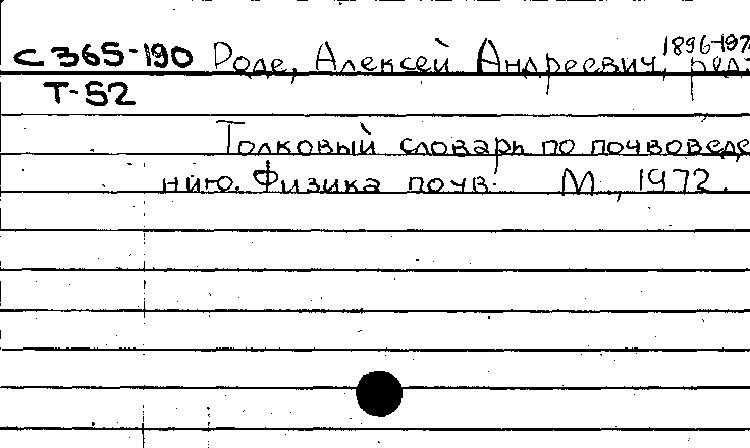 С365-190 Роде, Алексей Андреевич, 1896-197 ред.
Т-52
Толковый словарь по почвоведе
нию. Физика почв. М., 1972.